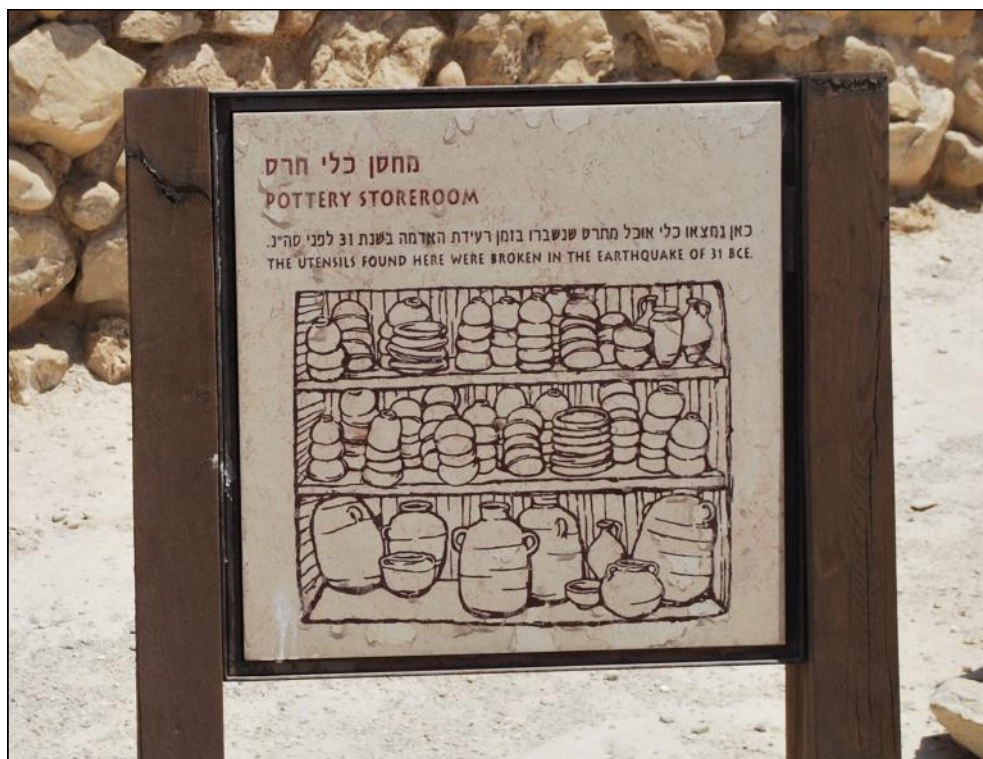 מחסן כלי חרס
POTTERY STOREROOM
כאן נמצאו כלי אוכל מחרס שנשברו בזמן רעידת האדמה בשנת 31 לפני סה״נ.
THE UTENSILS FOUND HERE WERE BROKEN IN THE EARTHQUAKE OF 31 BCE.